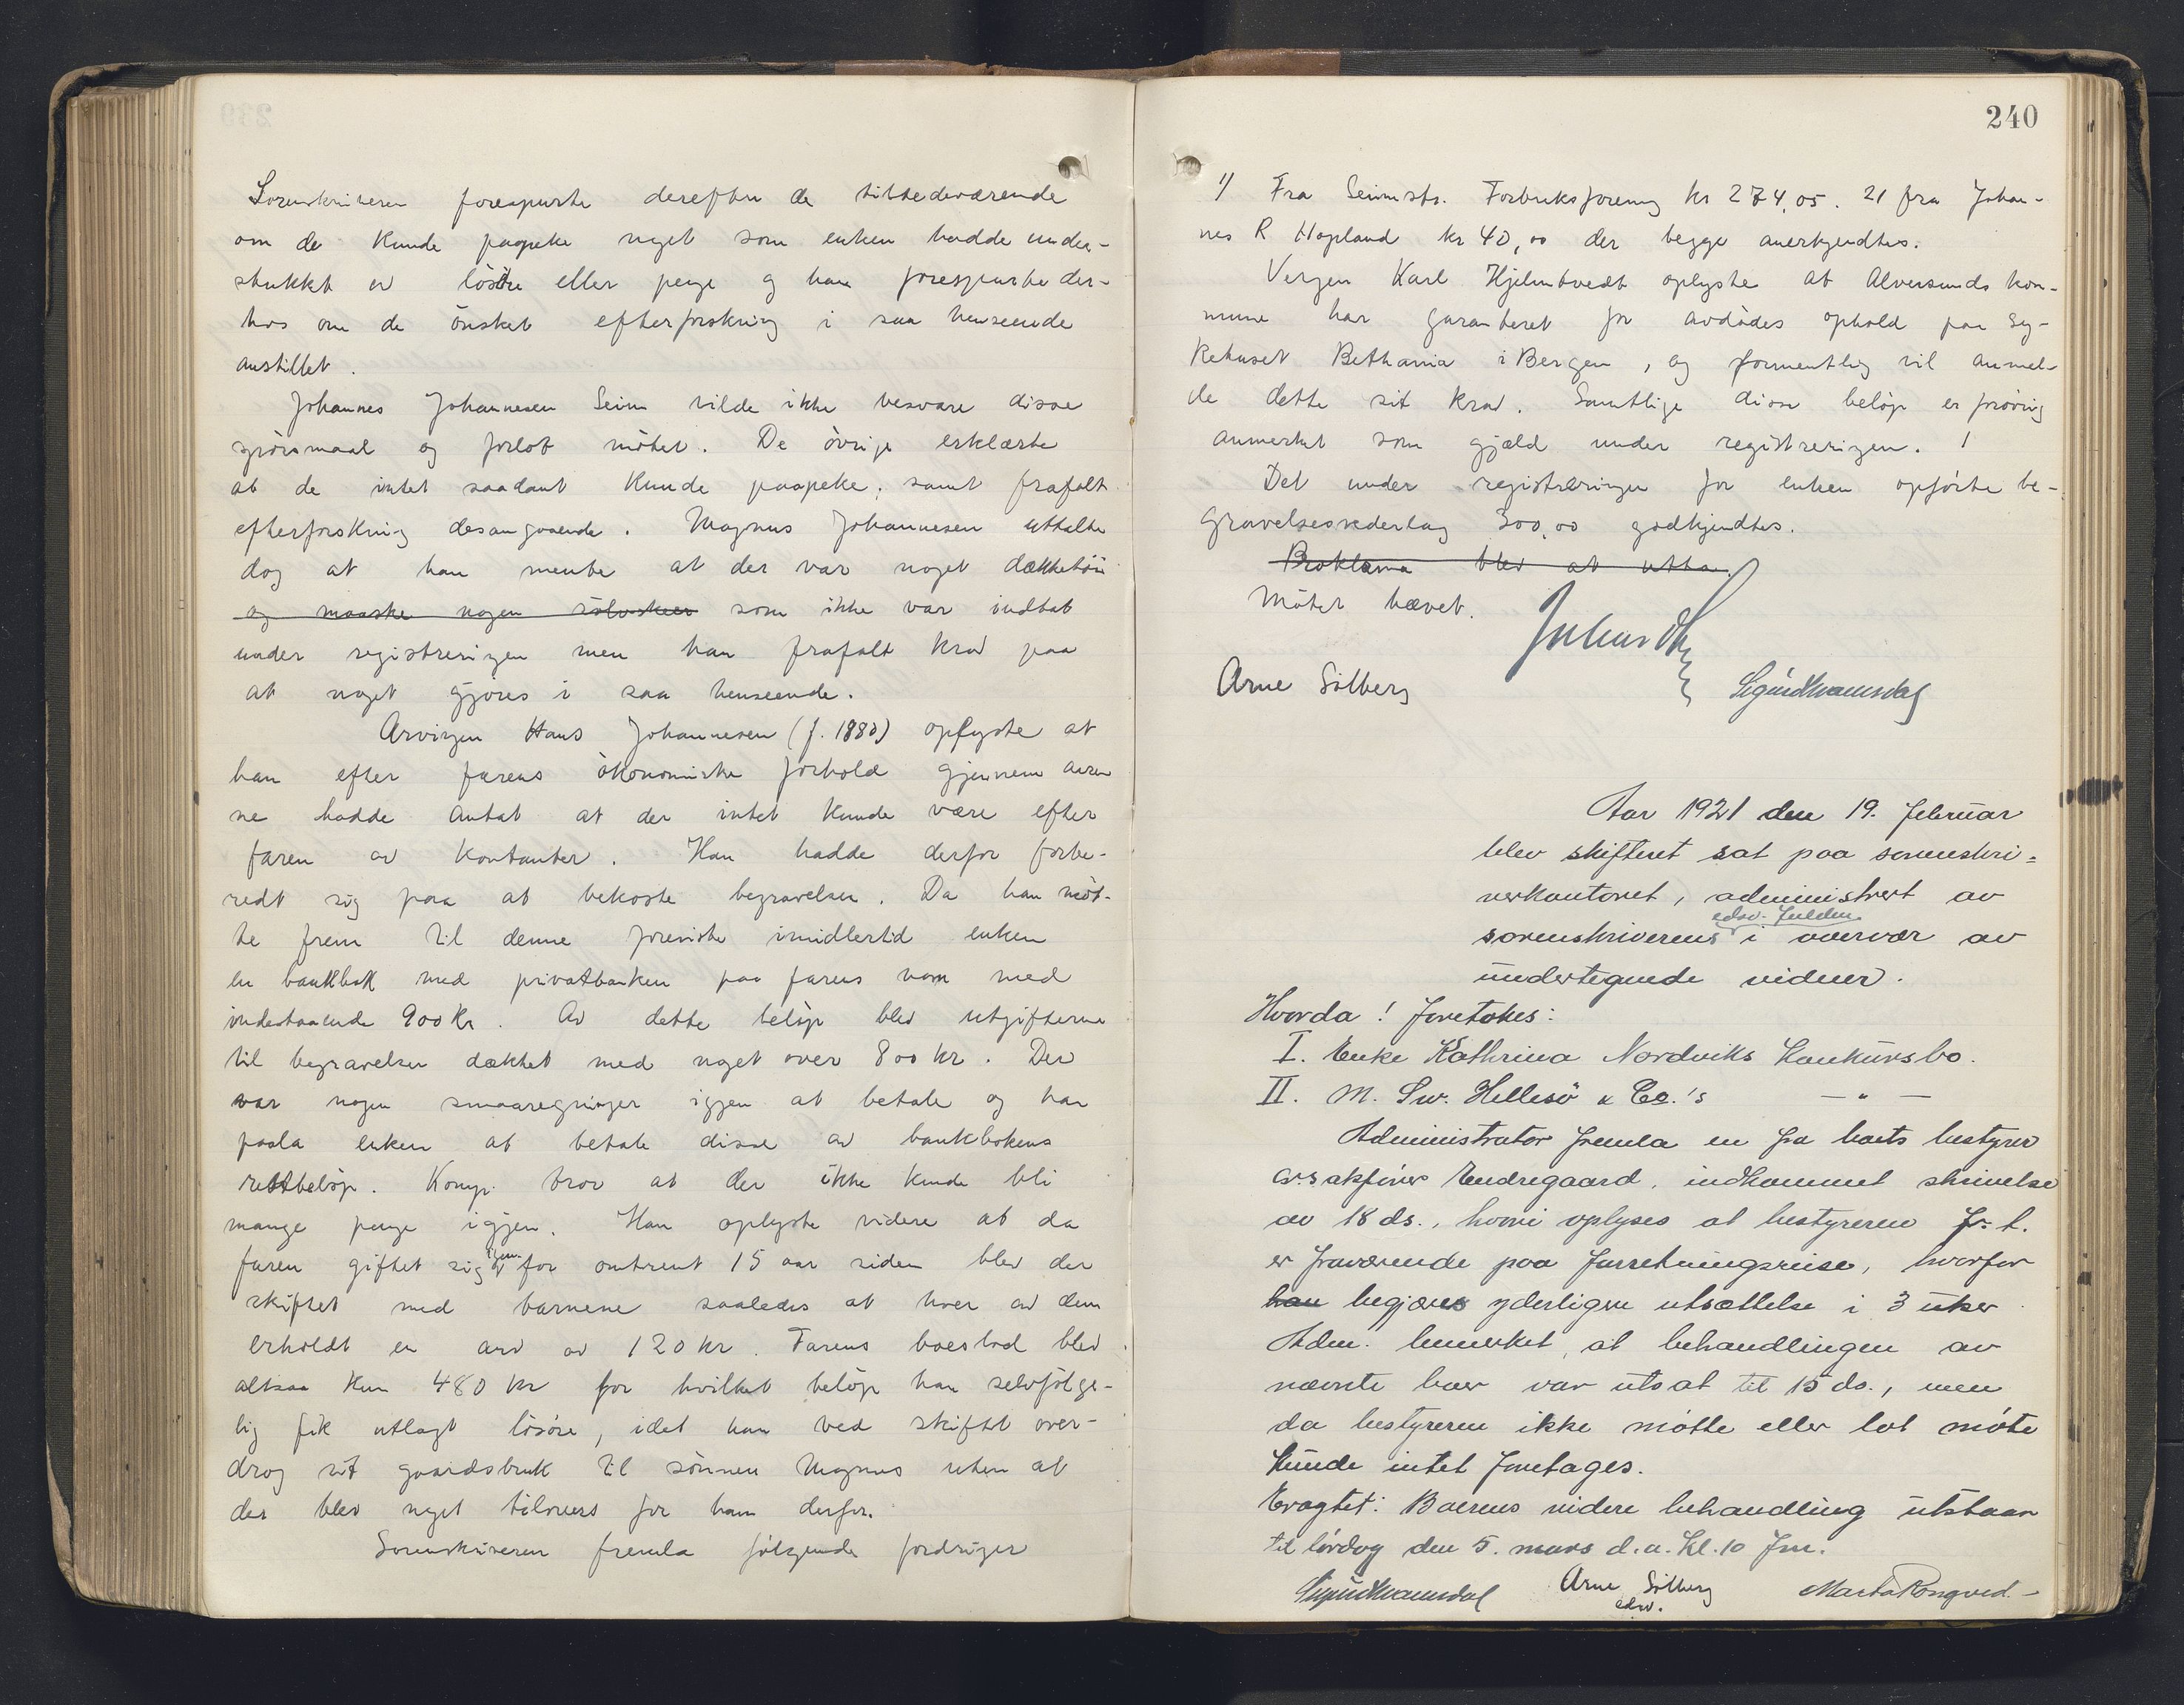 Sorenskriveren forespurte derefter de tilstedeværende
om de kunde paapeke noget som enken hadde under-
stukket av lösöre eller penge og han forespurte der-
hos om de önsket efterforskning i saa henseende
anstillet.
Johannes Johannesen Seim vilde ikke besvare disse
spörsmaal og forlot mötet. De övrige erklærte
at de intet saadant kunde paapeke, samt frafalt
efterforskning desangaaende. Magnus Johannesen uttalte
dog at han mente at der var noget dækketöi
og maaske nogen sölvskeer som ikke var indtat
under registreringen men han frafalt krav paa
at noget gjöres i saa henseende.
Arvingen Hans Johannesen (f. 1880) oplyste at
han efter farens ökonomiske forhold gjennem aare
ne hadde antat at der intet kunde være efter
faren av kontanter. Han hadde derfor forbe-
redt sig paa at bekoste begravelsen. Da han möt-
te frem til denne foreviste imidlertid enken
en bankbok med privatbanken paa farens navn med
indestaaende 900 kr. Av dette belöp blev utgifterne
til begravelsen dækket med noget over 800 kr. Der
var nogen smaaregninger igjen at betale og han
paala enken at betale disse av bankbokens
restbelöp. Komp. tror at der ikke kunde bli
mange penge igjen. Han oplyste videre at da
faren giftet sig igjen for omtrent 15 aar siden blev der
skiftet med barnene saaledes at hver av dem
erholdt en arv av 120 kr. Farens boeslod blev
altsaa kun 480 kr for hvilket belöp han selvfölge-
lig fik utlagt lösöre, idet han ved skiftet over-
drog sit gaardsbruk til sönnen Magnus uten at
der blev noget tilovers for ham derfor.
Sorenskriveren fremla fölgende fordringer
240
1/ Fra Seimstr. Forbruksforening kr 274,05. 2/ fra Johan-
nes R Hopland kr 40,00 der begge anerkjendtes.
Vergen Karl Hjelmtvedt oplyste at Alversunds kom-
mune har garanteret for avdödes ophold paa Sy-
kehuset Bethania i Bergen, og formentlig vil anmel-
de dette sit krav. Samtlige disse belöp er forövrig
anmerket som gjæld under registreringen. 1
Det under registreringen for enken opförte be-
gravelsesvederlag 300,00 godkjendtes.
Proklama blev at utta.
Mötet hævet.
Arne Sölberg Sigurd Kvamsdal
Aar 1921 den 19. februar
blev skifteret sat paa sorenskri-
verkontoret, administrert av
sorenskriverens edsv. fuldm. i overvær av
undertegnede vidner.
Hvorda! foretokes:
I. Enke Kathrina Nordviks konkursbo.
II. M. Sw. Hellesö & Co.'s — " —
Administrator fremla en fra boets bestyrer
o.r.sakförer Endregaard, indkommet skrivelse
av 18 ds., hvori oplyses at bestyreren f. t.
er fraværende paa forretningsreise, hvorfor
han begjæres yderligere utsættelse i 3 uker.
Adm. bemerket, at behandlingen av
nævnte boer var utsat til 15 ds., men
da bestyreren ikke mötte eller lot möte
kunde intet foretages.
Eragtet: Boernes videre behandling utstaar
til lördag den 5. mars d.a. kl. 10 fm.
Sigurd Kvamsdal Arne Sölberg Marta Rongved.
edsv.